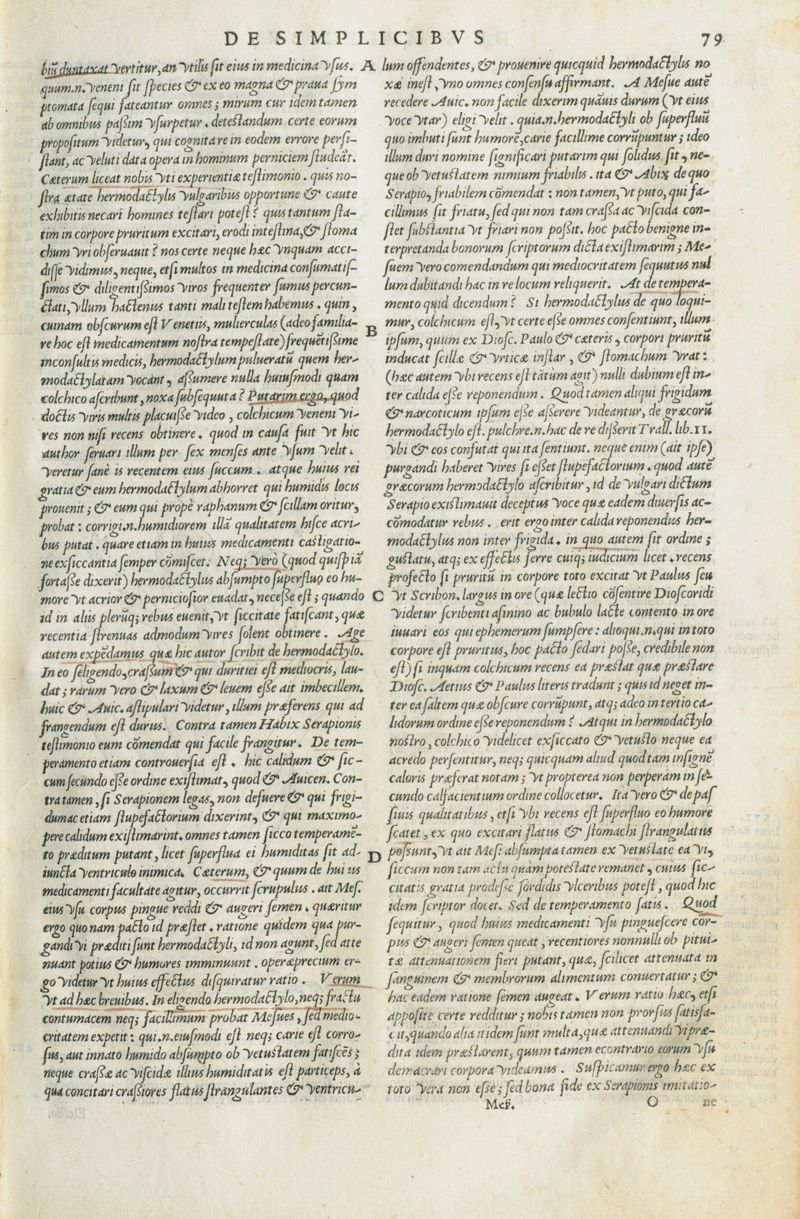 DE SIMPLICIBVS 79
biū duntaxat vertitur, an vtilis sit eius in medicina vsus.
quum.n. veneni sit species & ex eo magna & praua sym
ptomata sequi fateantur omnes; mirum cur idem tamen
ab omnibus passim vsurpetur. detestandum certe eorum
propositum videtur, qui cognita re in eodem errore persi-
stant, ac veluti data opera in hominum perniciem studeāt.
Cæterum liceat nobis vti experientiæ testimonio. quis no-
stra ætate hermodactylis vulgaribus opportune & caute
exhibitis necari homines testari potest? quis tantum sta-
tim in corpore pruritum excitari, erodi intestina, & stoma
chum vri obseruauit? nos certe neque hæc vnquam acci-
disse vidimus, neque, etsi multos in medicina consumatis-
simos & diligentissimos viros frequenter sumus percun-
ctati, vllum hactenus tanti mali testem habemus. quin,
cuinam obscurum est Venetiis, mulierculas (adeo familia-
re hoc est medicamentum nostra tempestate) frequētissime
inconsultis medicis, hermodactylum pulueratū quem her-
modactylatam vocant, assumere nulla huiusmodi quam
colchico ascribunt, noxa subsequuta? Putarim ergo, quod
doctis viris multis placuisse video, colchicum veneni vi-
res non nisi recens obtinere. quod in causa fuit vt hic
author seruari illum per sex menses ante vsum velit.
veretur sanè is recentem eius succum. atque huius rei
gratia & eum hermodactylum abhorret qui humidis locis
prouenit; & eum qui propè raphanum & scillam oritur,
probat: corrigi.n. humidiorem illā qualitatem hisce acri-
bus putat. quare etiam in huius medicamenti castigatio-
ne exsiccantia semper cōmiscet. Neq; vero (quod quispiā
fortasse dixerit) hermodactylus absumpto superfluo eo hu-
more vt acrior & perniciosior euadat, necesse est; quando
id in aliis plerūq; rebus euenit, vt siccitate fatiscant, quæ
recentia strenuas admodum vires solent obtinere. Age
autem expēdamus quæ hic autor scribit de hermodactylo.
In eo seligendo, crassum & qui duritiei est mediocris, lau-
dat; rarum vero & laxum & leuem esse ait imbecillem.
huic & Auic. astipulari videtur, illum præferens qui ad
frangendum est durus. Contra tamen Habix Serapionis
testimonio eum cōmendat qui facile frangitur. De tem-
peramento etiam controuersia est. hic calidum & sic-
cum secundo esse ordine existimat, quod & Auicen. Con-
tra tamen, si Serapionem legas, non desuere & qui frigi-
dum ac etiam stupefactorium dixerint, & qui maximo-
pere calidum existimarint. omnes tamen sicco temperamē-
to præditum putant, licet superflua ei humiditas sit ad-
iuncta ventriculo inimica. Cæterum, & quum de huius
medicamenti facultate agitur, occurrit scrupulus. ait Mes.
eius vsu corpus pingue reddi & augeri semen. quæritur
ergo quonam pacto id præstet. ratione quidem qua pur-
gandi vi præditi sunt hermodactyli, id non agunt, sed atte
nuant potius & humores imminuunt. operæprecium er-
go videtur vt huius effectus disquiratur ratio. Verum
vt ad hæc breuibus. In eligendo hermodactylo, neq; fractu
contumacem neq; facillimum probat Mesues, sed medio-
critatem expetit: qui.n. eiusmodi est neq; carie est corro-
sus, aut innato humido absumpto ob vetustatem fatiscēs;
neque crassæ ac viscidæ illius humiditatis est particeps, à
qua concitari crassiores flatus strangulantes & ventricu-
A lum offendentes, & prouenire quicquid hermodactylus no
xæ inest, vno omnes consensu affirmant. A Mesue autē
recedere Auic. non facile dixerim quāuis durum (vt eius
voce vtar) eligi velit. quia.n. hermodactyli ob superfluū
quo imbuti sunt humorē, carie facillime corrūpuntur; ideo
illum duri nomine significari putarim qui solidus sit, ne-
que ob vetustatem nimium friabilis. ita & Abix de quo
Serapio, friabilem cōmendat: non tamen, vt puto, qui fa-
cillimus sit friatu, sed qui non tam crassa ac viscida con-
stet substantia vt friari non possit. hoc pacto benigne in-
terpretanda bonorum scriptorum dicta existimarim; Me-
suem vero comendandum qui mediocritatem sequutus nul
lum dubitandi hac in re locum reliquerit. At de tempera-
mento quid dicendum? Si hermodactylus de quo loqui-
B mur, colchicum est, vt certe esse omnes consentiunt, illum
ipsum, quum ex Diosc. Paulo & cæteris, corpori pruritū
inducat scillæ & vrticæ instar, & stomachum vrat:
(hæc autem vbi recens est tātum agit) nulli dubium est in-
ter calida esse reponendum. Quod tamen aliqui frigidum
& narcoticum ipsum esse asserere videantur, de græcorū
hermodactylo est. pulchre.n. hac de re disserit Trall. lib. 11.
vbi & eos confutat qui ita sentiunt. neque enim (ait ipse)
purgandi haberet vires si esset stupefactorium. quod autē
græcorum hermodactylo ascribitur, id de vulgari dictum
Serapio existimauit deceptus voce quæ eadem diuersis ac-
cōmodatur rebus. erit ergo inter calida reponendus her-
modactylus non inter frigida. in quo autem sit ordine;
gustatu, atq; ex effectis ferre cuiq; iudicium licet. recens
profecto si pruritū in corpore toto excitat vt Paulus seu
C vt Scribon. largus in ore (quæ lectio cōsentire Dioscoridi
videtur scribenti asinino ac bubulo lacte contento in ore
iuuari eos qui ephemerum sumpsere: alioqui.n. qui in toto
corpore est pruritus, hoc pacto sedari posse, credibile non
est) si inquam colchicum recens ea præstat quæ præstare
Diosc. Aetius & Paulus literis tradunt; quis id neget in-
ter ea saltem quæ obscure corrūpunt, atq; adeo in tertio ca-
lidorum ordine esse reponendum? Atqui in hermodactylo
nostro, colchico videlicet exsiccato & vetusto neque ea
acredo persentitur, neq; quicquam aliud quod tam insignē
caloris præferat notam; vt propterea non perperam in se-
cundo calfacientium ordine collocetur. Ita vero & de pas
siuis qualitatibus, etsi vbi recens est superfluo eo humore
scatet, ex quo excitari flatus & stomachi strangulatus
D possunt, vt ait Mes: absumpta tamen ex vetustate ea vi,
siccum non tam actu quàm potestate remanet, cuius sic-
citatis gratia prodesse sordidis vlceribus potest, quod hic
idem scriptor docet. Sed de temperamento satis. Quod
sequitur, quod huius medicamenti vsu pinguescere cor-
pus & augeri semen queat, recentiores nonnulli ob pitui-
tæ attenuationem fieri putant, quæ, scilicet attenuata in
sanguinem & membrorum alimentum conuertatur; &
hac eadem ratione semen augeat. Verum ratio hæc, etsi
apposite certe redditur; nobis tamen non prorsus satisfa-
cit, quando alia itidem sunt multa, quæ attenuandi vi præ-
dita idem præstarent, quum tamen econtrario eorum vsu
demacrari corpora videamus. Suspicamur ergo hæc ex
toto vera non esse; sed bona fide ex Serapionis imitatio-
Mes. O ne